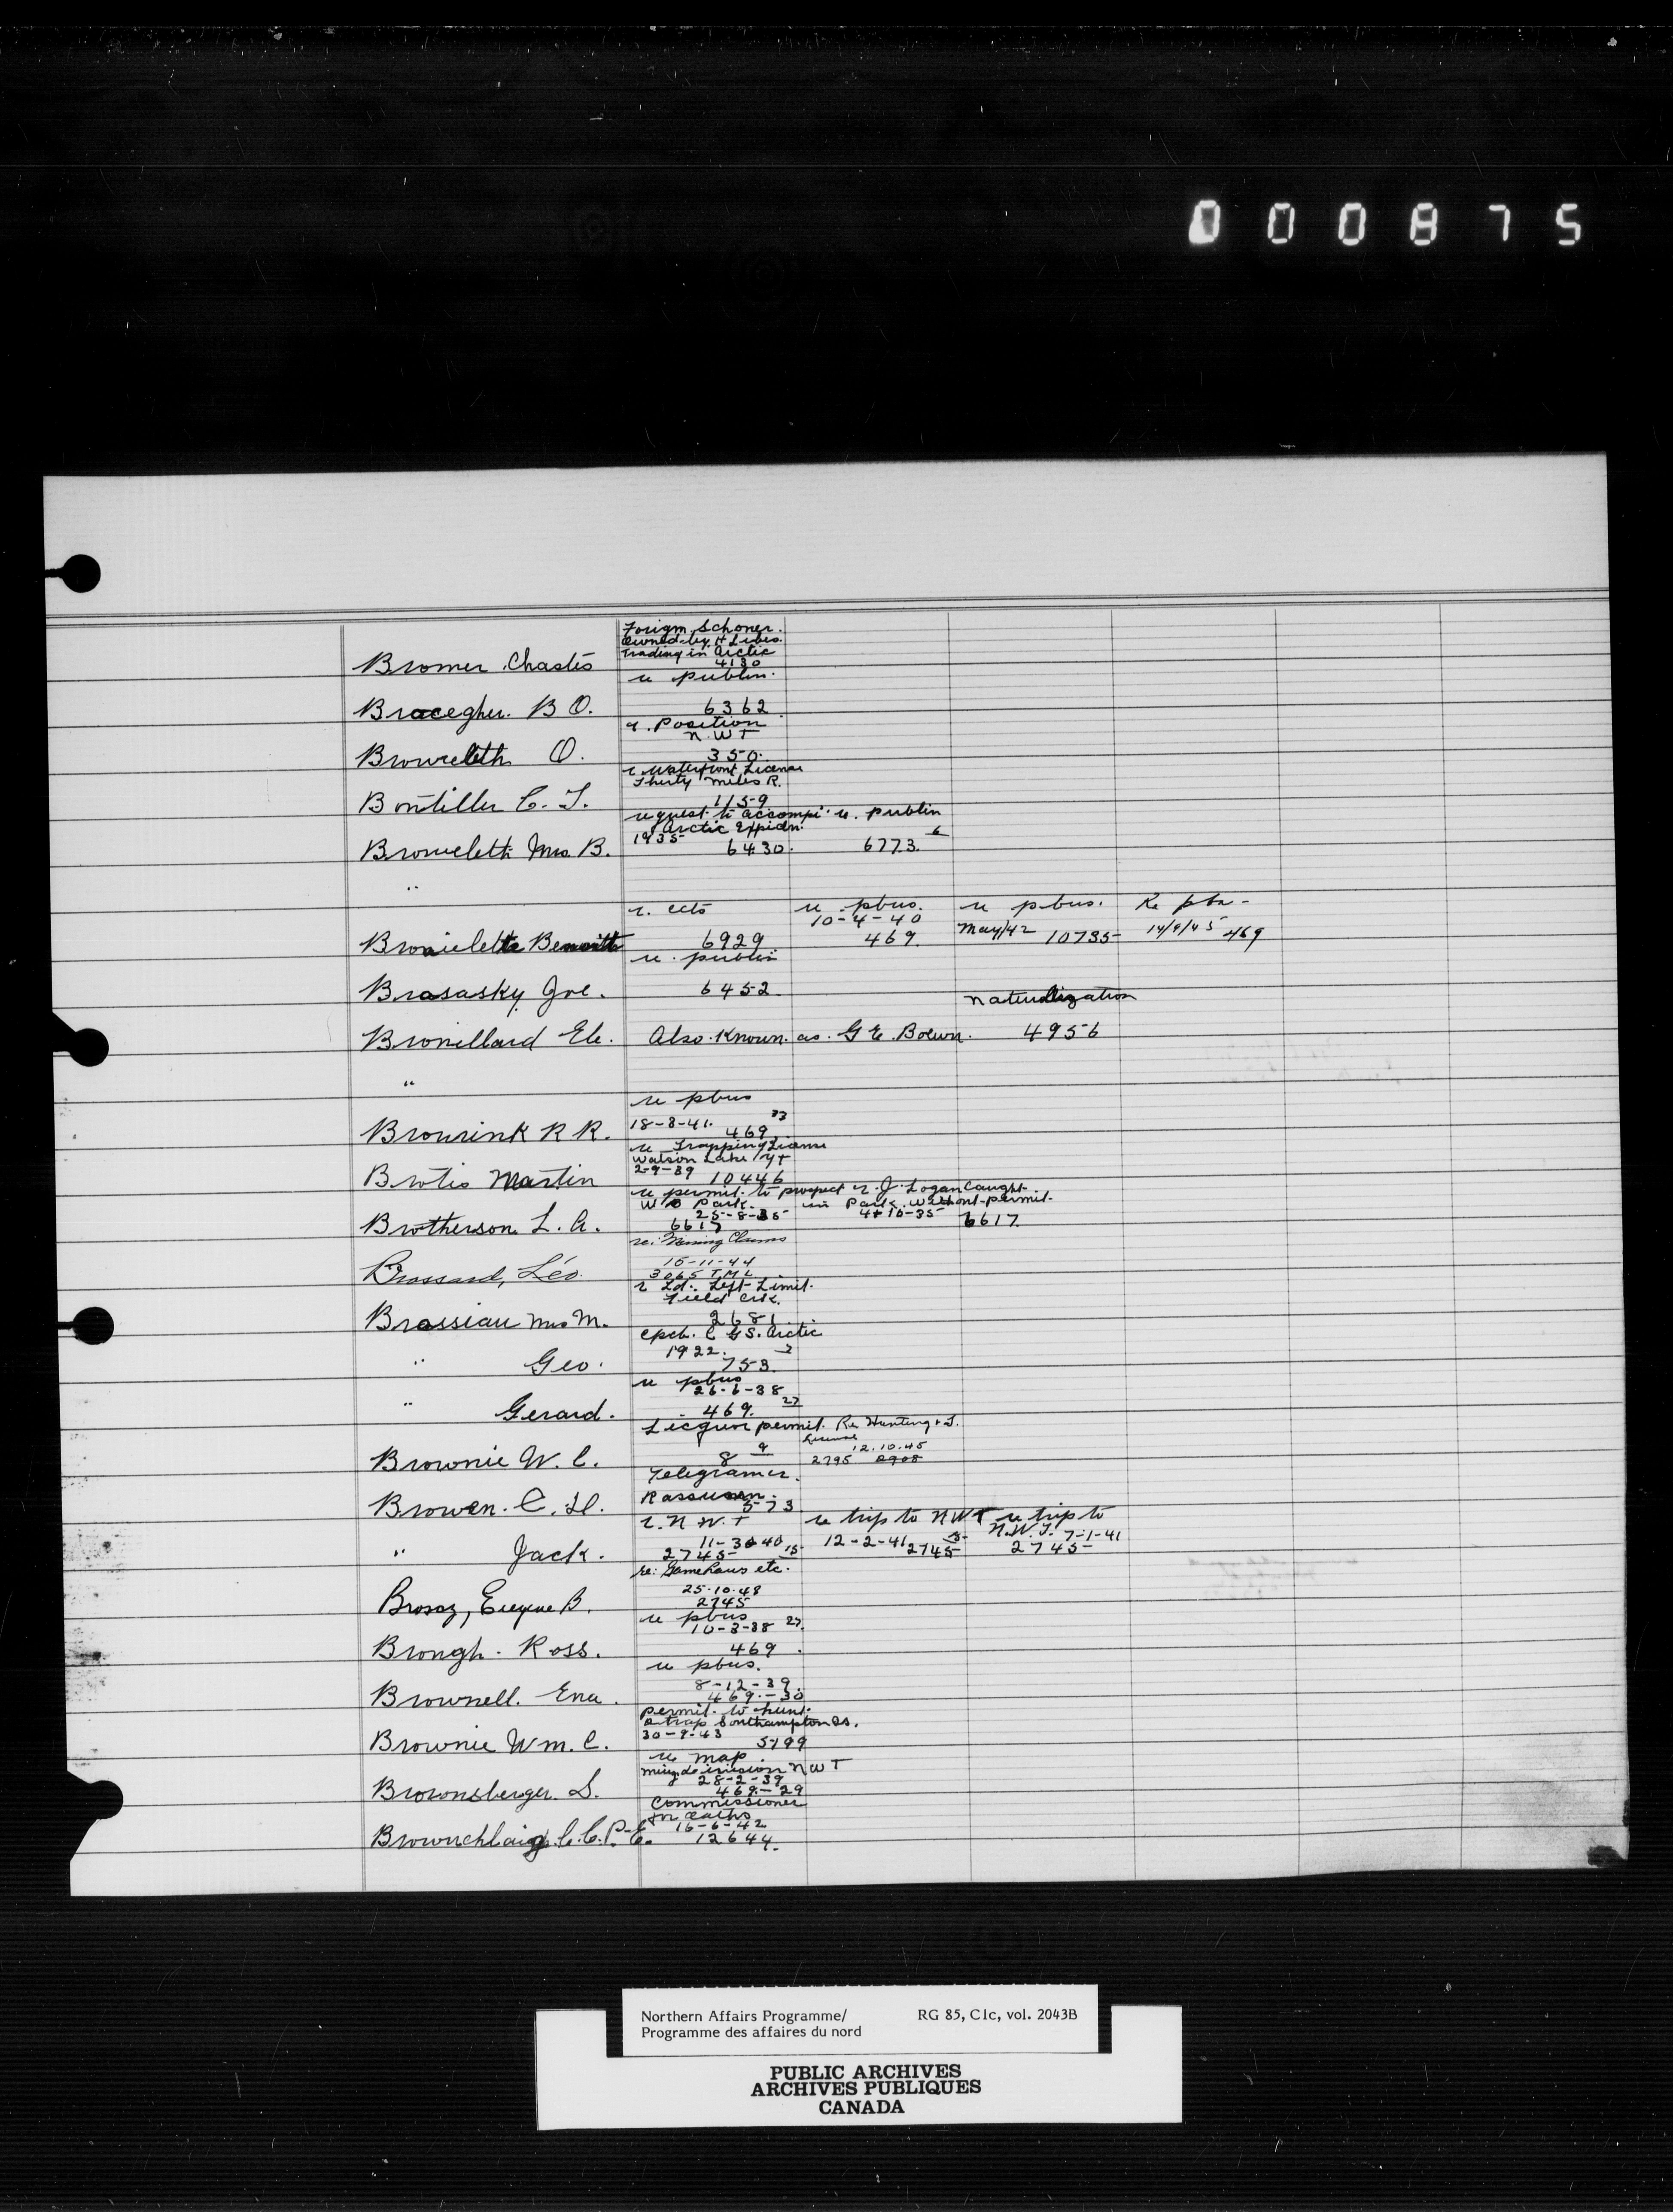 000875
Forign. Schoner.
Owned by. H Libes.
Trading in Arctic
Bromer. Chastis 4130
re publin.
Bracegher. B O. 6362
r. Position
N. W T
Browcleth O. 350.
r. Waterfront License
Thirty Miles R.
Bontiller C. T. 1159
request to accompi. re. publin
Arctic Expidn.
Browcleth Mrs. B. 1935 6430. 6773. 6
"
r. ects re pbus. re pbus. Re pbn-
10-4-40
6929 469. May/42 10735- 14/9/45 469
re. publin
Brasasky. Joe. 6452
Naturalization
Bronillard Ele. Also. Known. as. G E. Boewn. 4956
"
re pbus
Brourink R R. 18-8-41. 469 33
re Trapping License
Watson Lake Y T
2-9-39
Brotis Martin 10446
re permit. to prospect r. J. Logan Caught-
W B Park. in Park. without-permit-
25-8-35 4+10-35-
Brotherson. L. A. 6617 6617
re: Mining Claims
15-11-44
Brossard, Léo 3065 T M L
r Ld. Left-Limit.
Field Crk.
Brassiau Mrs M. 2681
Epch. C G S. Arctic
1922. 2
" Geo. 753.
re pbus
26-6-38
" Gerard. 469. 27
Licquor permit. Re Hunting & T.
License
9 12.10.45
Brownie W. C. 8 2795 2908
Telegram r.
Rassusen.
Browen. C. H. 573
r. N W. T re trip to N W T re trip to
11-30-40 12-2-41 N.W.T. 7-1-41
" Jack. 2745- 15- 2745- 2745-
re: Game Laws etc.
25.10.48
Brosoz, Eugene B. 2745
re pbus
10-3-38 27.
Brongh. Ross. 469.
re pbus.
8-12-39.
Brownell. Ena. 469.-30
permit. to hunt.
& trap Southampton Is.
30-9-43
Brownie Wm. C. 5799
re map.
N W T
28-2-39
Brownsberger. S. 469.-29
Commissioner
for oaths
16-6-42
C. C. P. E. 12644.
Northern Affairs Programme/ RG 85, C1c, vol. 2043B
Programme des affaires du nord
PUBLIC ARCHIVES
ARCHIVES PUBLIQUES
CANADA